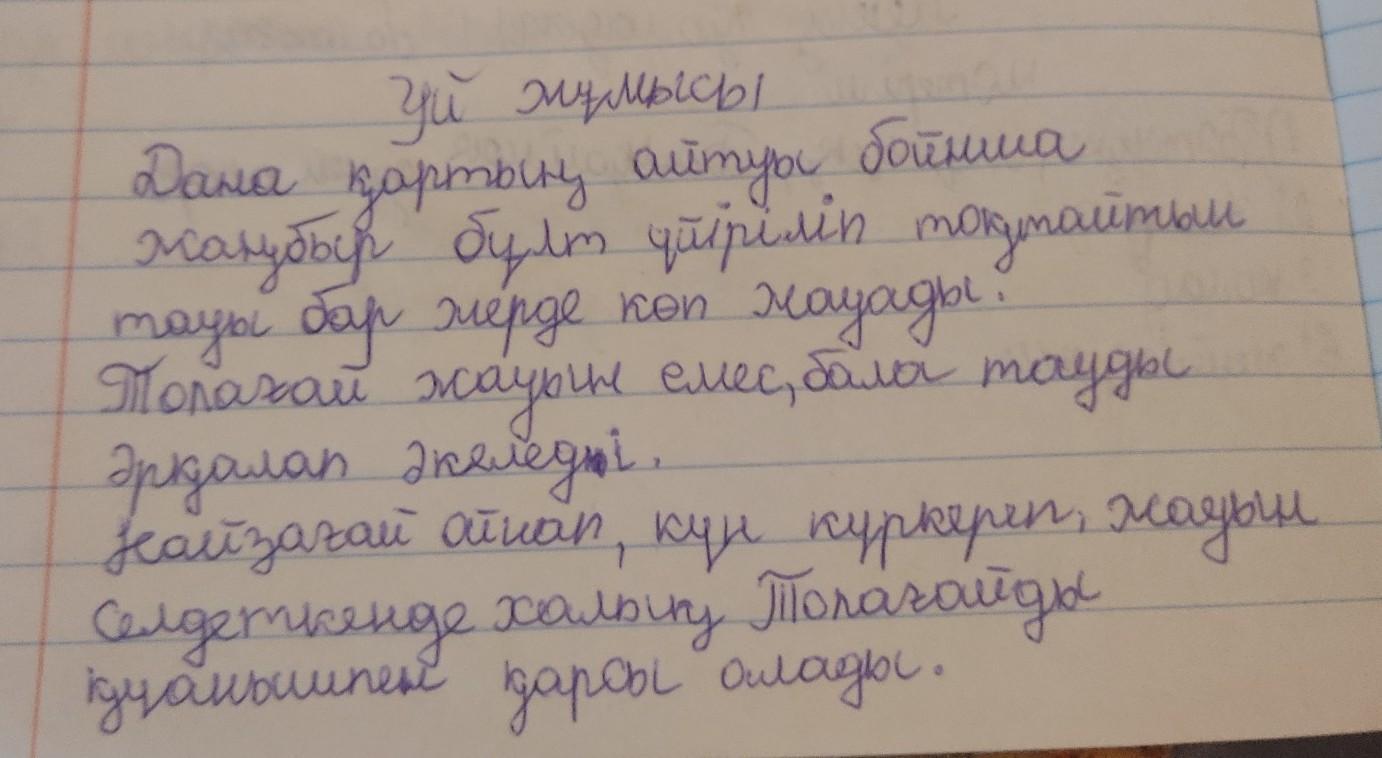 Үй жұмысы
Дана қартың айтуы бойынша
жаңбыр бұлт үйіріліп тоқтайтын
тауы бар жерде көп жауады.
Толағай жауын емес, бала тауды
әрқалап әкеледі.
Найзағай ойнап, күн күркіреп, жауын
селдеткенде халық Толағайды
қуанышпен қарсы алады.